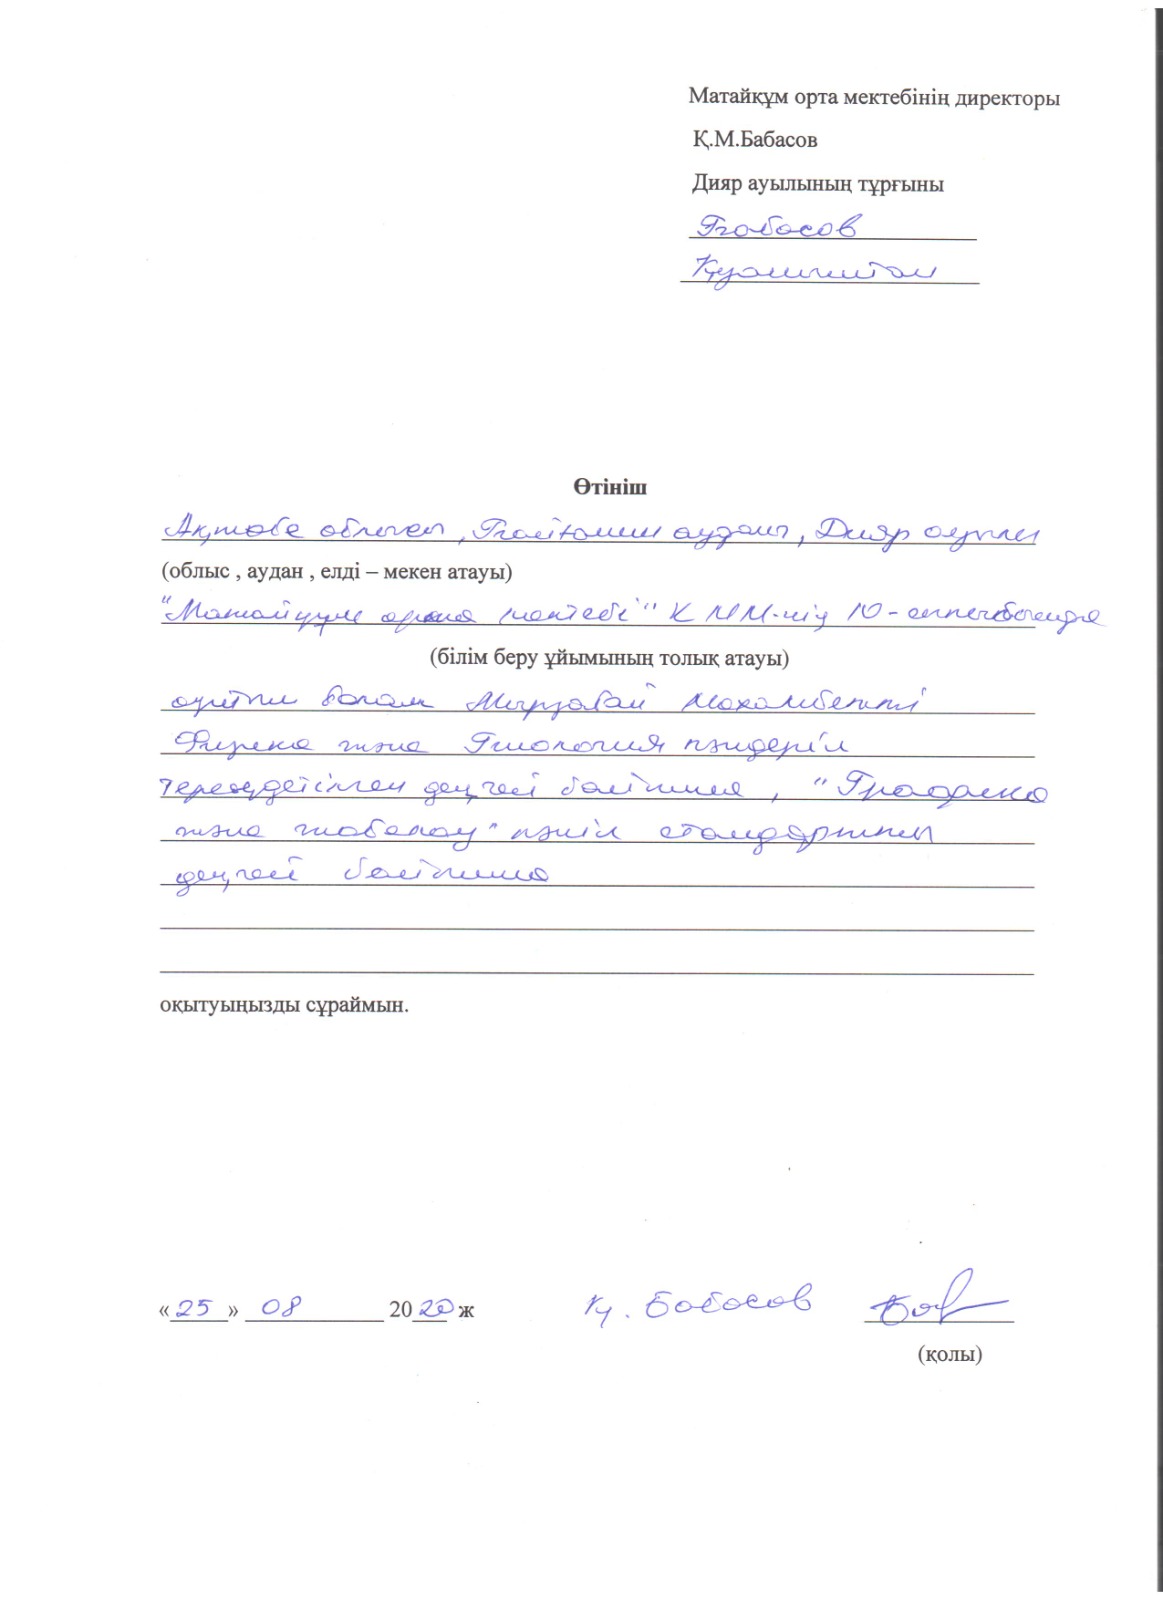 Матайқұм орта мектебінің директоры
Қ.М.Бабасов
Дияр ауылының тұрғыны
Бабасов
Қуанышттан
Өтініш
Ақтөбе облысы, Байғанин ауданы, Дияр ауылы
(облыс , аудан , елді – мекен атауы)
"Матайқұм орта мектебі" КММ-нің 10-сыныбында
(білім беру ұйымының толық атауы)
оқитын балам Мырзабай Махамбетті
Физика және Биология пәндерін
тереңдетілген деңгей бойынша, "Графика
және жобалау" пәнін стандартты
деңгей бойынша
оқытуыңызды сұраймын.
«25» 08 2020 ж Қ. Бабасов
(қолы)